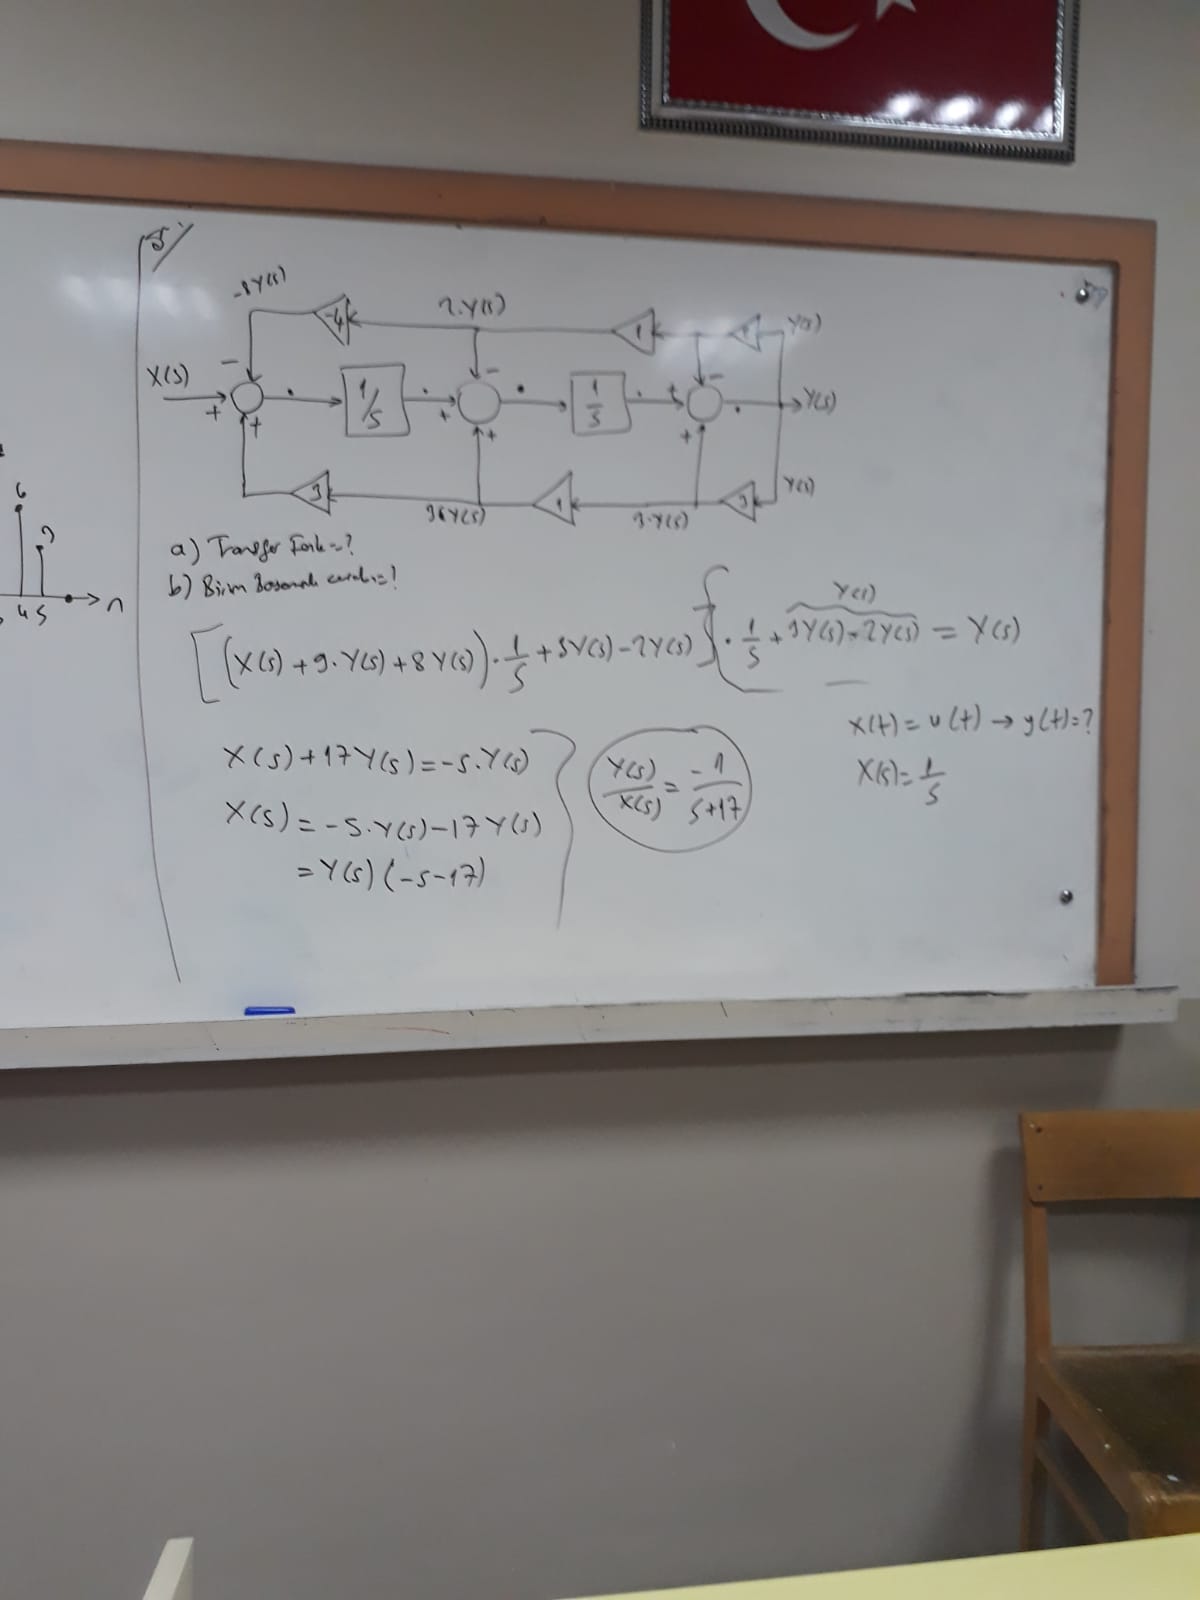 5/
-8Y(s)
-4
2.Y(s)
1
Y(s)
X(s)
-
+
+
1/s
+
-
+
1/s
+
-
+
Y(s)
3
3Y(s)
1
3.Y(s)
3
Y(s)
6
4 5
n
a) Transfer Fonk=?
b) Birim Basamak cevabı=?
Y(s)
[(X(s)+9.Y(s)+8Y(s)).1/s+3Y(s)-2Y(s)].1/s+3Y(s)-2Y(s)=Y(s)
X(s)+17Y(s)=-s.Y(s)
X(s)=-s.Y(s)-17Y(s)
=Y(s)(-s-17)
Y(s)/X(s)=-1/s+17
x(t)=u(t)→y(t)=?
X(s)=1/s